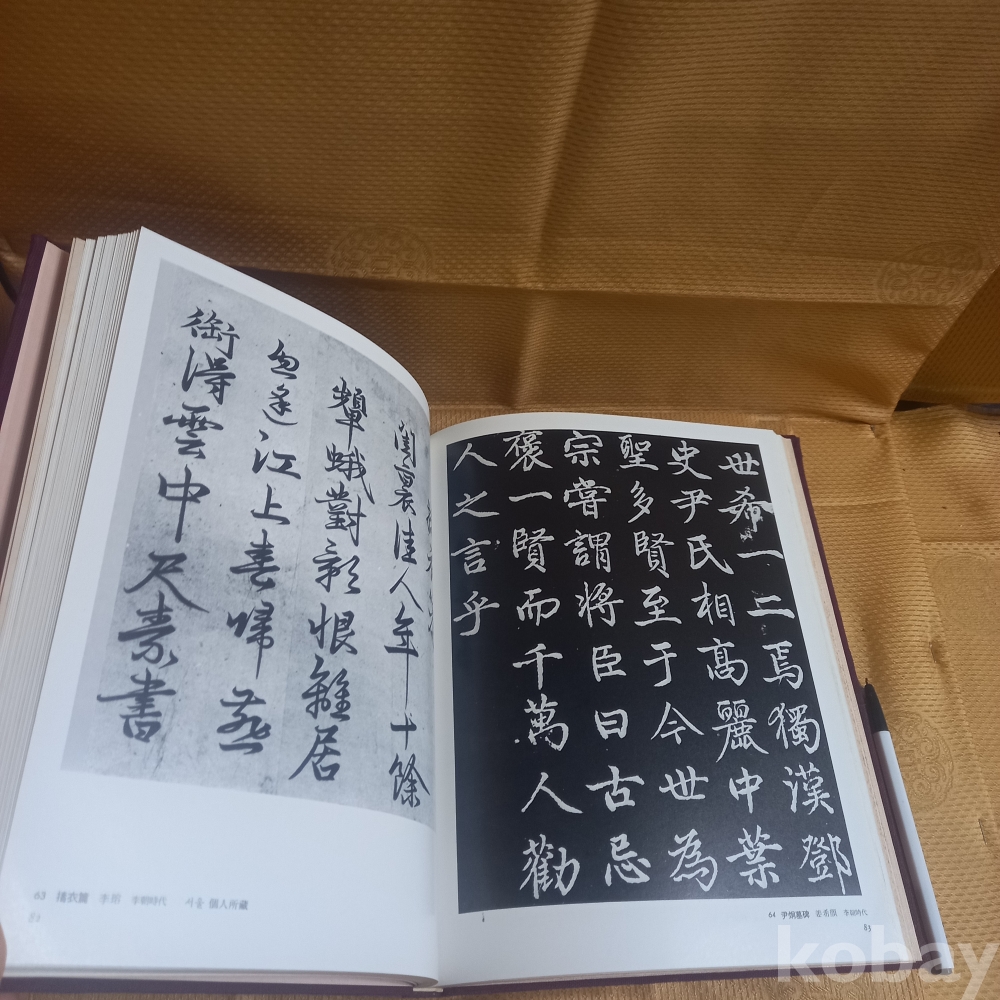 閨裏佳人年十餘
顰蛾對影恨離居
忽逢江上春歸燕
銜得雲中尺素書
63 擣衣篇 李瑢 李朝時代 서울 個人所藏
世希一二焉獨漢鄧
史尹氏相高麗中葉
聖多賢至于今世為
宗嘗謂將臣曰古忌
褒一賢而千萬人勸
人之言乎
64 尹炯墓碑 姜希顔 李朝時代
83
kobay